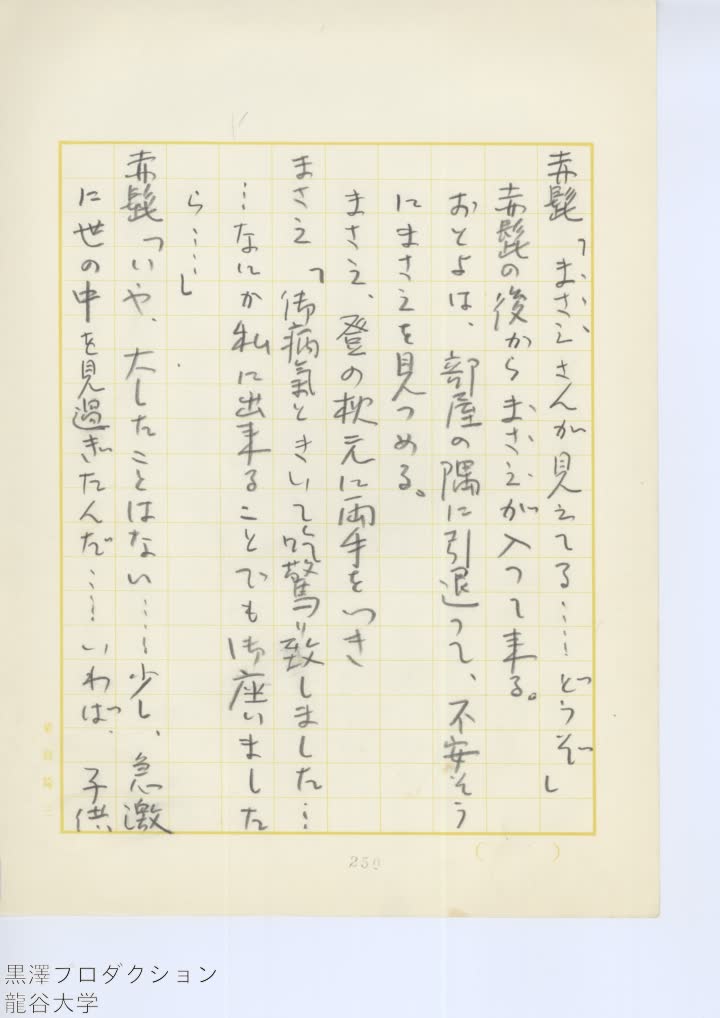 赤髭「まさえさんが見えてる……どうぞ」
赤髭の後からまさえが入って来る。
おとよは、部屋の隅に引退って、不安そう
にまさえを見つめる。
まさえ、登の枕元に両手をつき
まさえ「御病氣ときいて吃驚り致しました…
…なにか私に出来ることでも御座いました
ら……」
赤髭「いや、大したことはない……少し、急激
に世の中を見過ぎたんだ……いわば、子供
250
黒澤プロダクション
龍谷大学